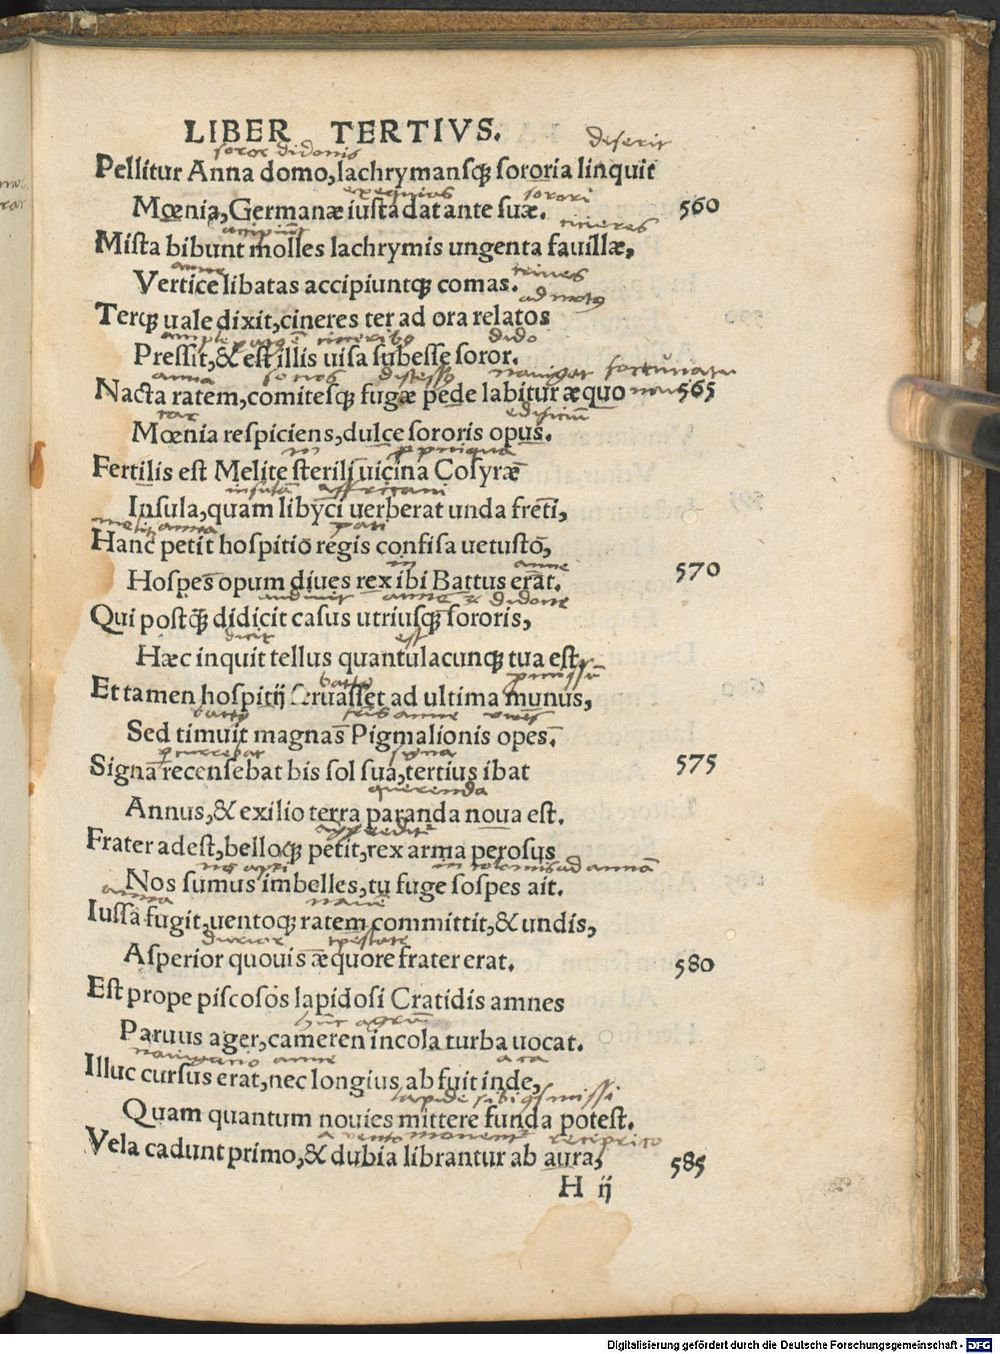 LIBER TERTIVS.
soror didonis
deserit
Pellitur Anna domo, lachrymansq; sororia linquit
exequias sorori
Mœnia, Germanæ iusta dat ante suæ. 560
cineres
Mista bibunt molles lachrymis ungenta fauillæ,
anne
Vertice libatas accipiuntq; comas.
Terq; uale dixit, cineres ter ad ora relatos
dido
Pressit, & est illis uisa subesse soror.
anna
Nacta ratem, comitesq; fugæ pede labitur æquo 565
Mœnia respiciens, dulce sororis opus.
Fertilis est Melite sterili uicina Cosyræ
Insula, quam libyci uerberat unda freti,
anna
Hanc petit hospitio regis confisa uetusto,
in anne
Hospes opum diues rex ibi Battus erat. 570
audiuit anne & didone
Qui postq̃ didicit casus utriusq; sororis,
dicit est
Hæc inquit tellus quantulacunq; tua est.
batto
Et tamen hospitij seruasset ad ultima munus,
batto
Sed timuit magnas Pigmalionis opes.
signa
Signa recensebat bis sol sua, tertius ibat 575
querenda
Annus, & exilio terra paranda noua est.
Frater adest, belloq; petit, rex arma perosus
Nos sumus imbelles, tu fuge sospes ait.
anna naue
Iussa fugit, uentoq; ratem committit, & undis,
durior
Asperior quouis æquore frater erat. 580
Est prope piscosos lapidosi Cratidis amnes
Paruus ager, cameren incola turba uocat.
nauigatio anne
Illuc cursus erat, nec longius abfuit inde,
Quam quantum nouies mittere funda potest.
a vento
Vela cadunt primo, & dubia librantur ab aura, 585
H ij
Digitalisierung gefördert durch die Deutsche Forschungsgemeinschaft - DFG